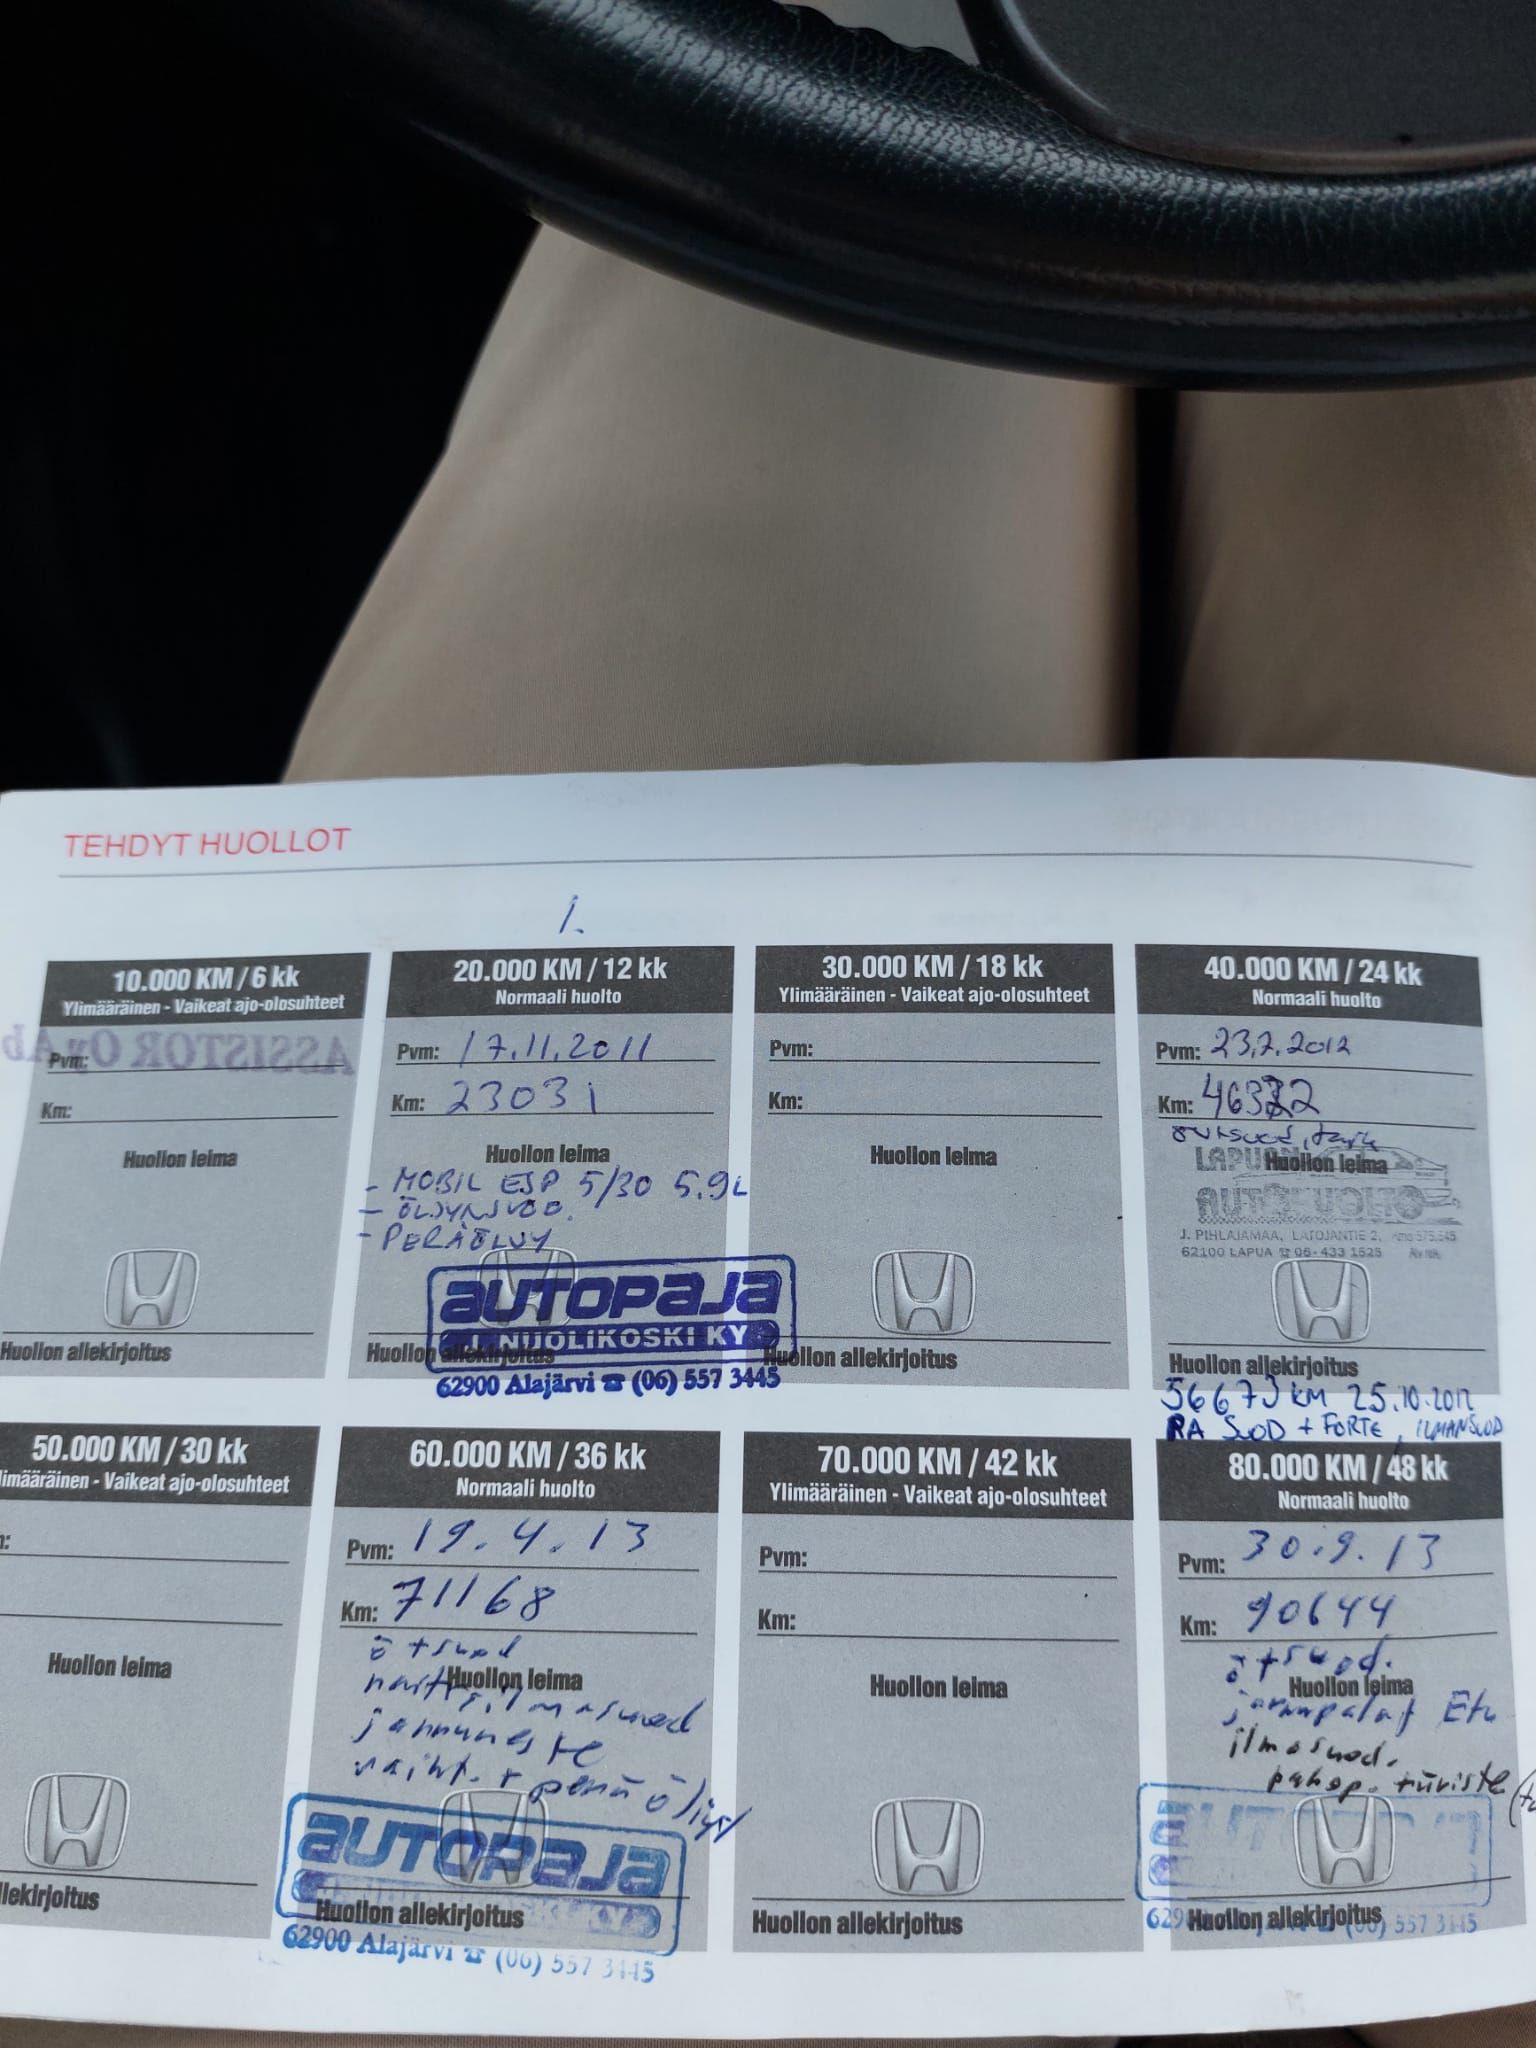 TEHDYT HUOLLOT
1.
10.000 KM / 6 kk
Ylimääräinen - Vaikeat ajo-olosuhteet
ASSISTOR Oy Ab
Pvm:
Km:
Huollon leima
Huollon allekirjoitus
20.000 KM / 12 kk
Normaali huolto
Pvm: 17.11.2011
Km: 23031
Huollon leima
- MOBIL ESP 5/30 5.9L
- ÖLJYNSUOD.
- PERÄÖLJY
AUTOPAJA
J. NUOLIKOSKI KY
Huollon allekirjoitus
62900 Alajärvi ☎ (06) 557 3445
30.000 KM / 18 kk
Ylimääräinen - Vaikeat ajo-olosuhteet
Pvm:
Km:
Huollon leima
Huollon allekirjoitus
40.000 KM / 24 kk
Normaali huolto
Pvm: 23.2.2012
Km:
Huollon leima
LAPUAN
AUTOHUOLTO
J. PIHLAJAMAA, LATOJANTIE 2,
62100 LAPUA ☎ 06-433 1525
Huollon allekirjoitus
56673 KM 25.10.2012
RA SUOD + FORTE, ILMANSUOD
50.000 KM / 30 kk
Ylimääräinen - Vaikeat ajo-olosuhteet
Huollon leima
allekirjoitus
60.000 KM / 36 kk
Normaali huolto
Pvm: 19.4.13
Km: 71168
ö + suod
Huollon leima
ilmasuod
jarruneste
vaiht. + perä öljyt
AUTOPAJA
Huollon allekirjoitus
62900 Alajärvi ☎ (06) 557 3445
70.000 KM / 42 kk
Ylimääräinen - Vaikeat ajo-olosuhteet
Pvm:
Km:
Huollon leima
Huollon allekirjoitus
80.000 KM / 48 kk
Normaali huolto
Pvm: 30.9.13
Km: 90644
ö + suod.
Huollon leima
jarrupalat Etu
ilmasuod.
pakop. tiiviste
AUTOPAJA
Huollon allekirjoitus
(06) 557 3445